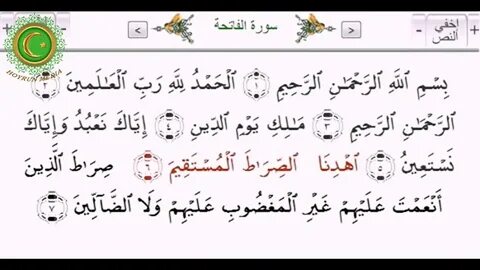 سورة الفاتحة
إخفي النص
+ -
< >
- +
HOYRUN MEDIA
بِسْمِ ٱللَّهِ ٱلرَّحْمَـٰنِ ٱلرَّحِيمِ ١ ٱلْحَمْدُ لِلَّهِ رَبِّ ٱلْعَـٰلَمِينَ ٢
ٱلرَّحْمَـٰنِ ٱلرَّحِيمِ ٣ مَـٰلِكِ يَوْمِ ٱلدِّينِ ٤ إِيَّاكَ نَعْبُدُ وَإِيَّاكَ
نَسْتَعِينُ ٥ ٱهْدِنَا ٱلصِّرَٰطَ ٱلْمُسْتَقِيمَ ٦ صِرَٰطَ ٱلَّذِينَ
أَنْعَمْتَ عَلَيْهِمْ غَيْرِ ٱلْمَغْضُوبِ عَلَيْهِمْ وَلَا ٱلضَّآلِّينَ ٧